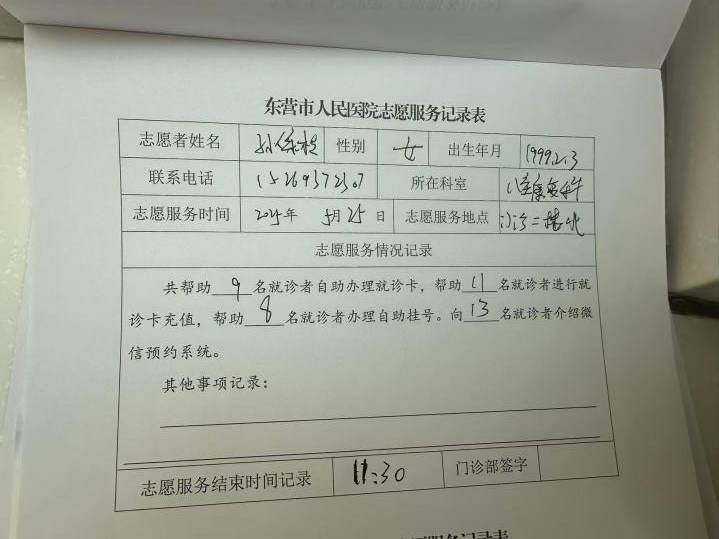 东营市人民医院志愿服务记录表
志愿者姓名 孙 性别 女 出生年月 1999.2.3
联系电话 15269372507 所在科室 健康
志愿服务时间 2025年 5月25日 志愿服务地点 门诊二楼北
志愿服务情况记录
共帮助9名就诊者自助办理就诊卡，帮助11名就诊者进行就
诊卡充值，帮助8名就诊者办理自助挂号。向13名就诊者介绍微
信预约系统。
其他事项记录：
志愿服务结束时间记录 11:30 门诊部签字